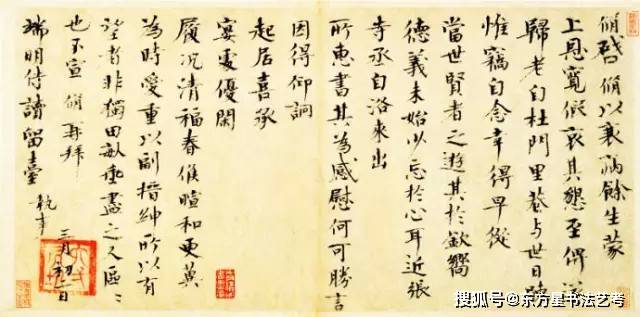 脩啓脩以衰病餘生蒙
上恩寛假哀其懇至俾遂
歸老自杜門里巷与世日踈
惟竊自念幸得早從
當世賢者之遊其於欽嚮
德義未始少忘於心耳近張
寺丞自洛來出
所惠書其為感慰何可勝言
因得仰詢
起居喜承
宴處優閑
履况清福春候暄和更冀
為時愛重以副搢紳所以有
望者非獨田畝垂盡之人區〻
也不宣脩再拜
端明侍讀留臺 執事
三月初二日
搜狐号@东方星书法艺考